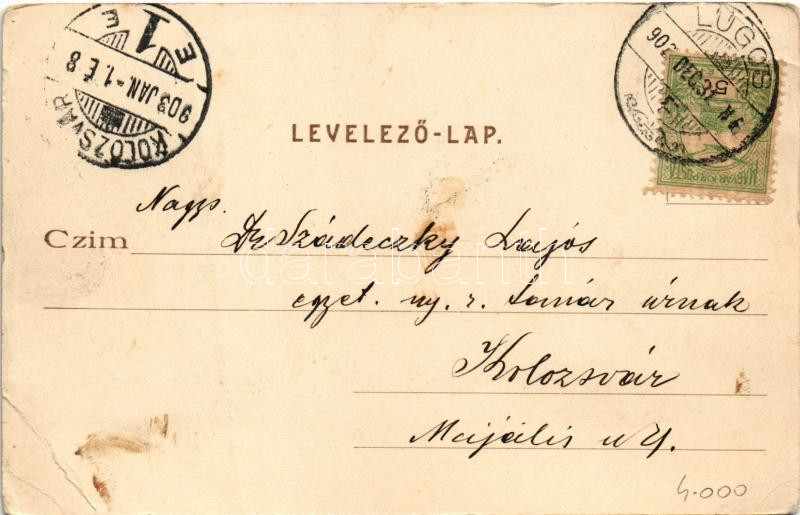 KOLOZSVÁR
903 JAN.-1. É 8
E 1 E
LUGOS
5
MAGYAR KIR. POSTA
LEVELEZŐ-LAP.
Nagys.
Czim Dr Szádeczky Lajos
egyet. ny. r. tanár úrnak
Kolozsvár
Majális u
4.000
darabanth